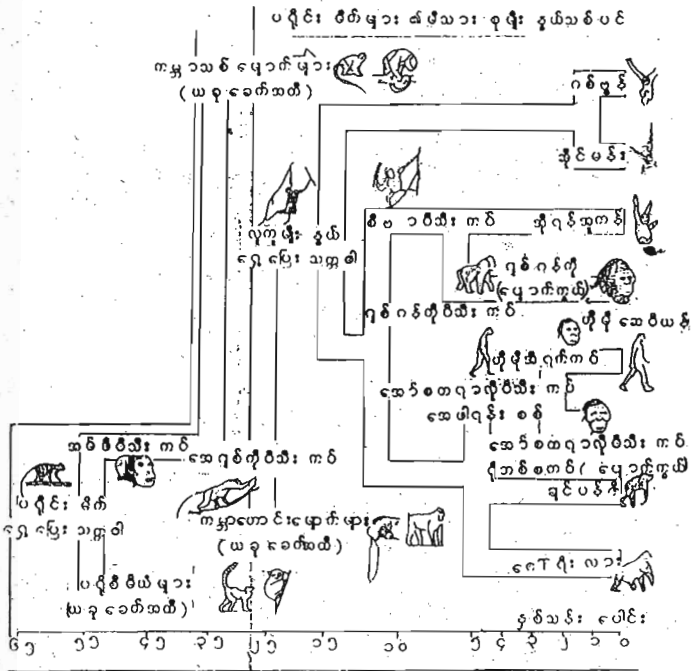 ပရိုင်းမိတ်များ ၏ မိသားစုမျိုးနွယ်သစ်ပင်
ကမ္ဘာသစ် မျောက်များ
(ယခုခေတ်အထိ)
ဂစ်ဗွန်
ဆိုင်မန်း
လူတူမျိုးနွယ်
ရှေ့ပြေး သတ္တဝါ
စီဗာပီသီးကပ်
အိုရန်အူတန်
ဂျစ်ဂန်တို
(ပျောက်ကွယ်)
ဂျစ်ဂန်တိုပီသီးကပ်
ဟိုမို ဆေပီယန်
ဟိုမိုအီရက်ကပ်
အော်စတရာလိုပီသီးကပ်
အဖါရန်းစစ်
အော်စတရာလိုပီသီးကပ်
ရိုဘစ်စတပ် (ပျောက်ကွယ်)
ချင်ပန်ဇီ
အမ်ဖီပီသီးကပ်
အေဂျစ်တိုပီသီးကပ်
ပရိုင်းမိတ်
ရှေ့ပြေး သတ္တဝါ
ကမ္ဘာဟောင်းမျောက်များ
(ယခုခေတ်အထိ)
ဂေါ်ရီလား
ပရိုစီမီယံများ
(ယခုခေတ်အထိ)
နှစ်သန်းပေါင်း
၆၅ ၅၅ ၄၅ ၃၅ ၂၅ ၁၅ ၁၀ ၅ ၄ ၃ ၂ ၁ ၀